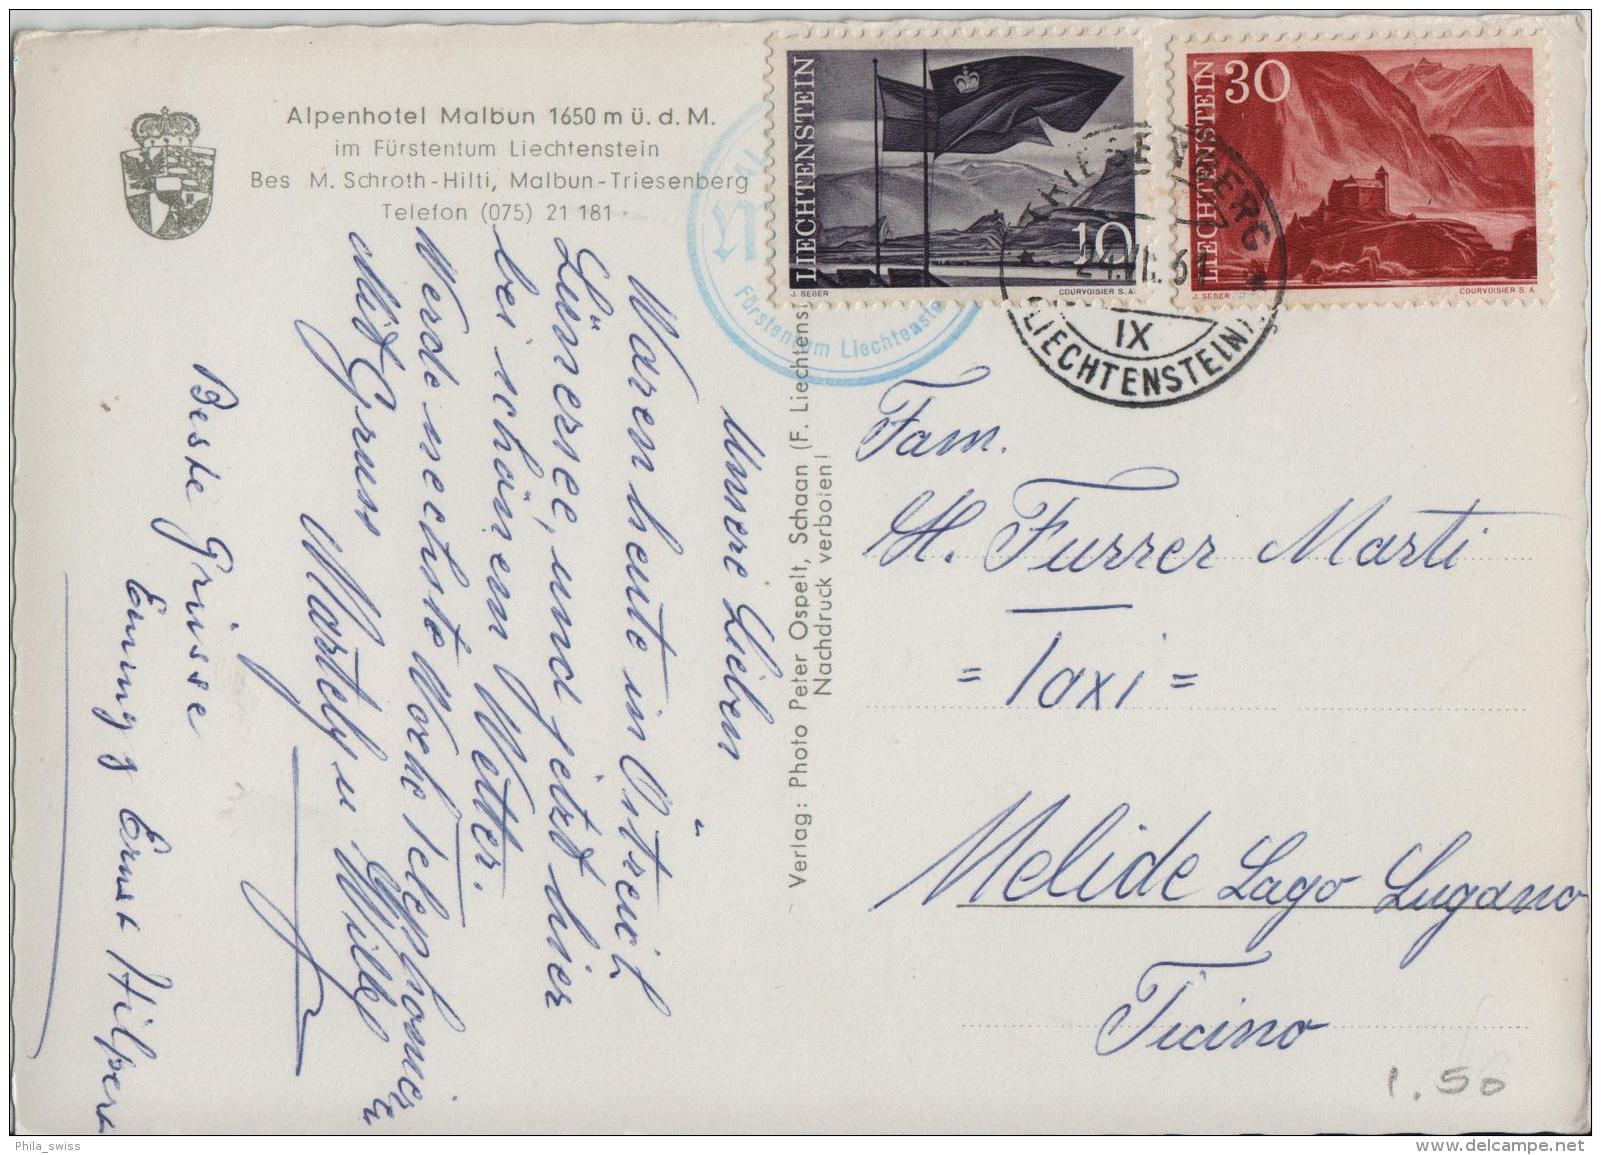 Alpenhotel Malbun 1650 m ü. d. M.
im Fürstentum Liechtenstein
Bes M. Schroth-Hilti, Malbun-Triesenberg
Telefon (075) 21 181
LIECHTENSTEIN
10
J. SEGER
COURVOISIER S. A.
LIECHTENSTEIN
30
J. SEGER
COURVOISIER S. A.
TRIESENBERG
24.VI.61
IX
(LIECHTENSTEIN)
Fürstentum Liechtenste
Unsere Lieben
Waren heute in Östreich
Lünersee, und jetzt hier
bei schönem Wetter.
Werde nechste Woche telephonieren
Mit Gruss
Martely u Willy
Beste Grüsse
Emmy & Ernst Hilpert
Verlag: Photo Peter Ospelt, Schaan (F. Liechtenst
Nachdruck verboten!
Fam.
H. Furrer Marti
= Taxi =
Melide Lago Lugano
Ticino
1.50
Phila_swiss
www.delcampe.net